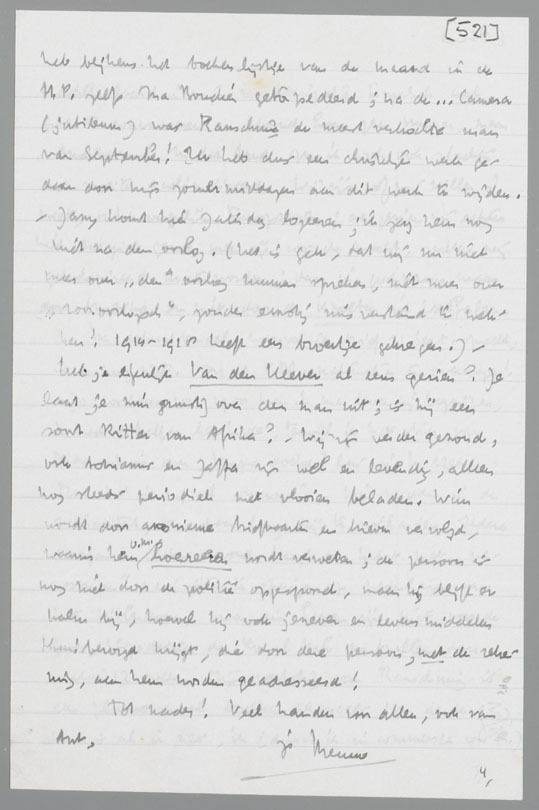 [521]
heb blijkens het boekenlijstje van de maand in de
H.P. zelfs Ina Boudier getorpedeerd; na de... Camera
(jubileum) was Rauschning de meest verkochte man
van September! Ik heb dus een christelijk werk ge-
daan door mijn zomermiddagen aan dit werk te wijden.
– Jany komt hier Zaterdag logeeren; ik zag hem nog
niet na den oorlog. (Het is gek, dat wij nu niet
meer over „den" oorlog kunnen spreken, niet meer over
„vooroorlogsch", zonder ernstig misverstand te wek-
ken! 1914-1918 heeft een broertje gekregen.) –
Heb je eigenlijk Van den Heever al eens gezien? Je
laat je niet gunstig over den man uit; is hij een
soort Ritter van Afrika? – Wij zijn verder gezond,
ook Adrianus en Jaffa zijn wel en levendig, alleen
nog steeds periodiek met vlooien beladen. Wim
wordt door anonieme briefkaarten en brieven vervolgd,
waarin hem o.m. hoererij wordt verweten; de persoon is
nog niet door de politie opgespoord, maar hij blijft er
kalm bij, hoewel hij ook jenever en levensmiddelen
thuisbezorgd krijgt, die door deze persoon, met de reke-
ning, aan hem worden geadresseerd!
Tot nader! Veel handen van allen, ook van
Ant,
je Menno